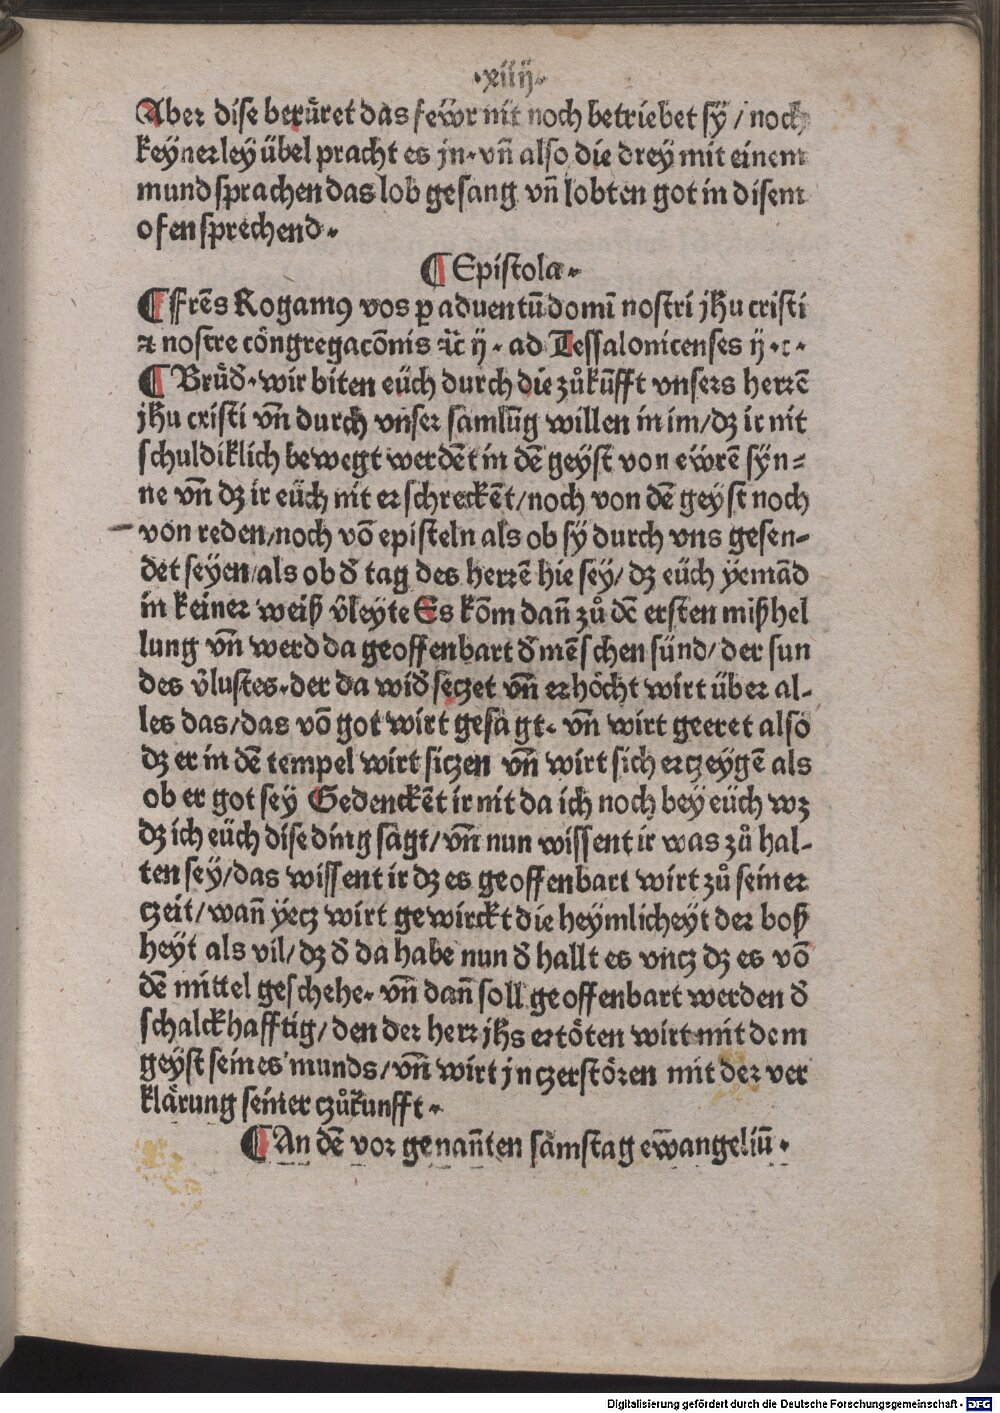 ·xiiij·
Aber dise berüret das fewr nit noch betriebet sÿ / noch
keÿnerleÿ übel pracht es jn· vñ also die dreÿ mit einem
mund sprachen das lob gesang vñ lobten got in disem
ofen sprechend·
¶ Epistola·
¶ ffrēs Rogamꝰ vos ꝑ aduentū domī nostri jhu cristi
⁊ nostre cōngregacōnis ⁊c̄ ij· ad Tessalonicenses ij·c·
¶ Brůd̄· wir biten eüch durch die zůkūfft vnsers herrē
jhu cristi vñ durch vnser samlūg willen in im/ dz ir nit
schuldiklich bewegt werdēt in dē geÿst von ewrē sÿn⸗
ne vñ dz ir eüch nit erschreckēt/ noch von dē geÿst noch
von reden/ noch vō episteln als ob sÿ durch vns gesen⸗
det seÿen/ als ob d̄ tag des herrē hie seÿ/ dz eüch ÿemād
in keiner weiß v̄leÿte Es kōm dañ zů dē ersten mißhel
lung vñ werd da geoffenbart d̄ mēschen sünd/ der sun
des v̄lustes· der da wid̄seczet vñ erhöcht wirt über al⸗
les das/ das vō got wirt gesagt· vñ wirt geeret also
dz er in dē tempel wirt siczen vñ wirt sich erczeÿgē als
ob er got seÿ Gedenckēt ir nit da ich noch beÿ eüch wz
dz ich eüch dise ding sagt/ vñ nun wissent ir was zů hal⸗
ten seÿ/ das wissent ir dz es geoffenbart wirt zů seiner
czeit/ wañ ÿecz wirt gewirckt die heÿmlicheÿt der boß
heÿt als vil/ dz d̄ da habe nun d̄ hallt es vncz dz es vō
dē mittel geschehe· vñ dañ soll geoffenbart werden d̄
schalckhafftig/ den der herr jhs ertöten wirt mit dem
geÿst seines munds/ vñ wirt jn czerstören mit der ver
klärung seiner czůkunfft·
¶ An dē vor genañten samstag ewangeliū·
Digitalisierung gefördert durch die Deutsche Forschungsgemeinschaft - DFG